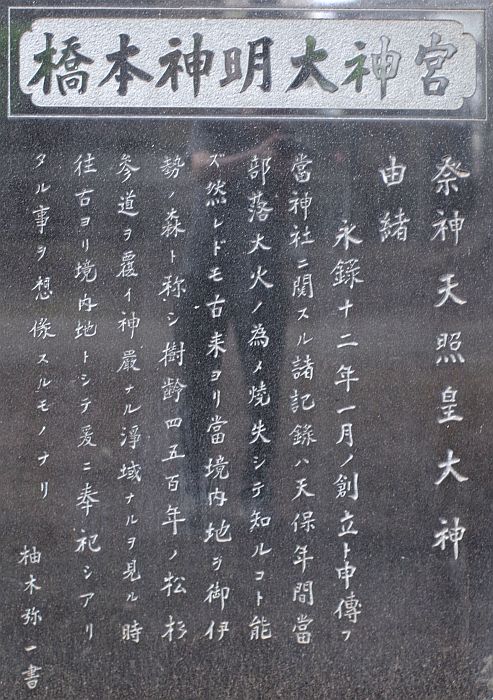 橋本神明大神宮
祭神天照皇大神
由緒
永録十二年一月ノ創立ト申傳フ
當神社ニ関スル諸記録ハ天保年間當
部落大火ノ為メ焼失シテ知ルコト能
ズ然レドモ古来ヨリ當境内地ヲ御伊
勢ノ森ト称シ樹齢四五百年ノ松杉
参道ヲ覆イ神厳ナル淨域ナルヲ見ル時
往古ヨリ境内地トシテ爰ニ奉祀シアリ
タル事ヲ想像スルモノナリ
柚木弥一書